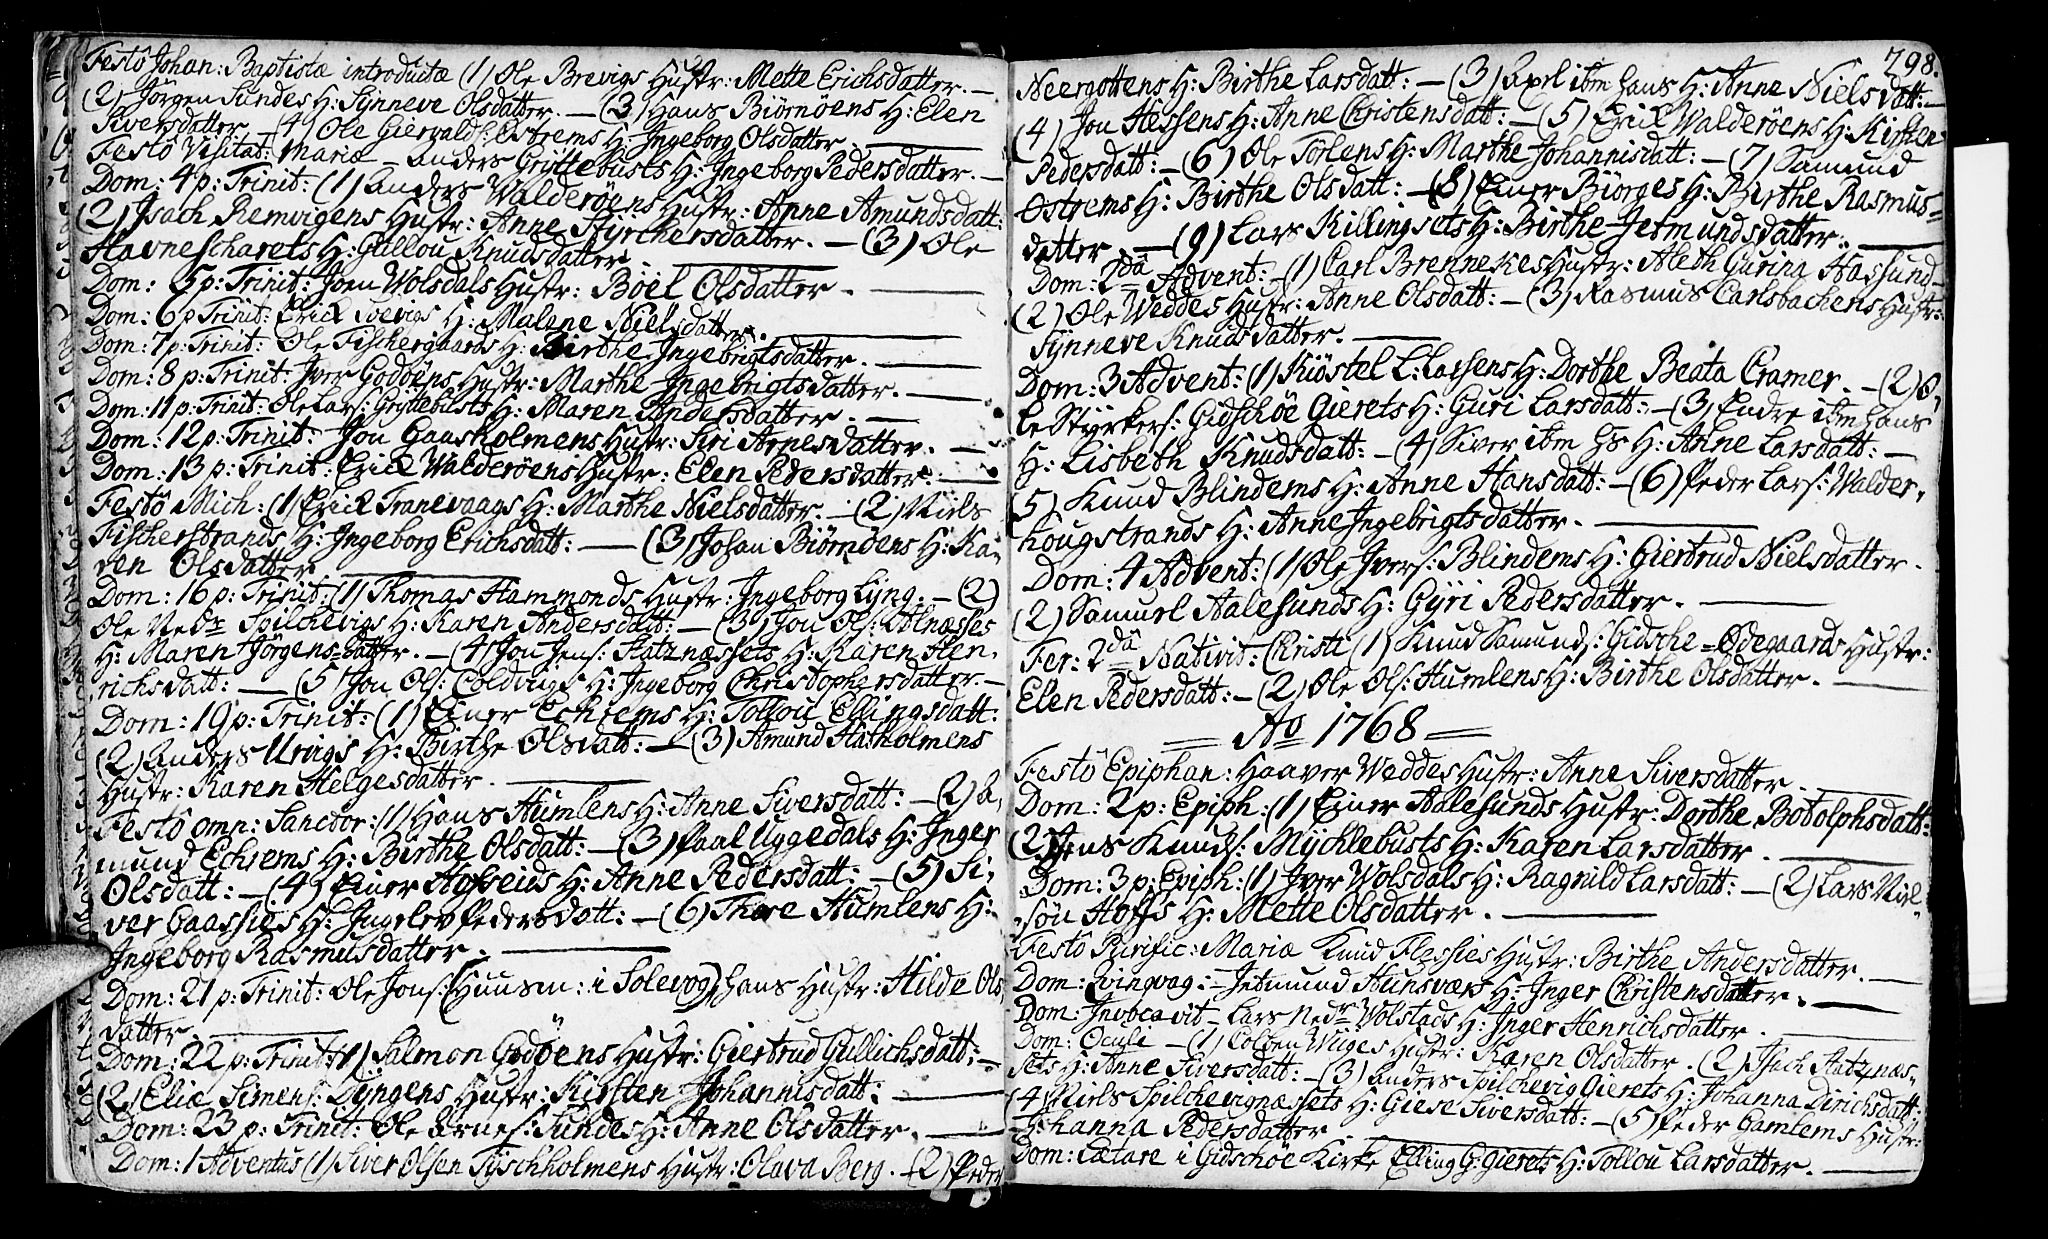 Festô Johan: Baptistæ introductæ (1) Ole Brevigs Hustr: Mette Erichsdatter. —
(2) Jørgen Sundes H: Synneve Olsdatter. — (3) Hans Biørnøens H: Elen
Siversdatter — (4) Ole Giervalds Østrems H: Ingeborg Olsdatter. —
Festô Visitat: Mariæ — Anders Gryttebusts H: Ingeborg Pedersdatter. —
Dom: 4 p: Trinit: (1) Anders Walderøens Hustr: Anne Amundsdatt:
(2) Isach Remvigens Hustr: Anne Styrchersdatter. — (3) Ole
Havneschærets H: Gullou Knudsdatter. —
Dom: 5 p: Trinit: Joen Wolsdals Hustr: Böel Olsdatter. —
Dom: 6 p Trinit: Erick H: Malene Nielsdatter. —
Dom: 7 p: Trinit: Ole Fischergaards H: Birthe Ingebrigtsdatter. —
Dom: 8 p: Trinit: Iver Godøens Hustr: Marthe Ingebrigtsdatter. —
Dom: 11 p: Trinit: Ole Lars: Gryttebusts H: Maren Andersdatter. —
Dom: 12 p: Trinit: Jon Gaasholmens Hustr: Siri Arnesdatter. —
Dom: 13 p: Trinit: Erick Walderøens Hustr: Elen Pedersdatter. —
Festô Mich: (1) Erick Tranevaags H: Marthe Nielsdatter. — (2) Niels
Fischerstrands H: Ingeborg Erichsdatt: — (3) Johan Biørnøens H: Ka-
ren Olsdatter —
Dom: 16 p: Trinit: (1) Thomas Hammonds Hustr: Ingeborg Lyng. — (2)
Ole Nedr Spilchevigs H: Karen Andersdatt: — (3) Jon Ols: Alnæsses
H: Maren Jörgens-datter. — (4) Jon Jens: Statznæssets H: Karen Hen-
richsdatt: — (5) Jon Ols: Coldvugs H: Ingeborg Christophersdatter. —
Dom: 19 p: Trinit: (1) Einer Echrems H: Tollou Ellingsdatt:
(2) Anders Urvigs H: Birthe Olsdatt: — (3) Amund Hatholmens
Hustr: Karen Helgesdatter. —
Festô omn: Sanctor: (1) Hans Humlens H: Anne Siversdatt: — (2) A-
mund Echrems H: Birthe Olsdatt: — (3) Paal Uggedals H: Inger
Olsdatt: — (4) Einer H: Anne Pedersdatt: — (5) Si-
ver Gaassies H: Ingelev Pedersdatt: — (6) Thore Humlens H:
Ingeborg Rasmusdatter. —
Dom: 21 p: Trinit: Ole Jons: (Huusm: i Solevog) hans Hustr: Hilde Ols
datter —
Dom: 22 p: Trinit: (1) Salmon Godöens Hustr: Giertrud Gullichsdatt: —
(2) Eliæ Simens: Dyngens Hustr: Kirsten Johannisdatt: —
Dom: 23 p: Trinit: Ole Arnes: Sundes H: Anne Olsdatter. —
Dom: 1 Adventus (1) Siver Olsen Tyschholmens Hustr: Olava Berg. — (2) Peder
798.
Neergottens H: Birthe Larsdatt: — (3) Axel ibm hans H: Anne Nielsdatt: —
(4) Jon Hessens H: Anne Christensdatt: — (5) Erick Walderøens H: Kirsten
Pedersdatt: — (6) Ole Törlens H: Marthe Johannisdatt: — (7) Samund
Østrems H: Birthe Olsdatt: — (8) Einer Biörges H: Birthe Rasmus-
datter. — (9) Lars Killingsets H: Birthe Jetmundsdatter. —
Dom: 2dâ Advent: — (1) Carl Brennekes Hustr: Aleth Gurina Hassund —
(2) Ole Weddes Hustr: Anne Olsdatt: — (3) Rasmus Carlsbachens Hustr:
Synneve Knudsdatter. —
Dom: 3 Advent: (1) Kiöstel L: Lassens H: Dorthe Beata Cramer. — (2) O-
le Styrkers: Gidschöe Gierets H: Guri Larsdatt: — (3) Endre ibm hans
H: Lisbeth Knudsdatt: — (4) Siver ibm hs H: Anne Larsdatt: —
(5) Knud Blindems H: Anne Hansdatt: — (6) Peder Lars: Walder-
hougstrands H: Anne Ingebrigtsdatter. —
Dom: 4 Advent: (1) Ole Ivers: Blindems H: Giertrud Nielsdatter.
(2) Samuel Aalesunds H: Gyri Pedersdatter. —
Fer: 2dâ Nativit: Christi (1) Knud Samunds: Gidsche-Ødegaards Hustr:
Elen Pedersdatt: — (2) Ole Ols: Humlens H: Birthe Olsdatter. —
= Ao 1768 =
Festô Epiphan: Haaver Weddes Hustr: Anne Siversdatter. —
Dom: 2 p: Epiph: (1) Einer Aalesunds Hustr: Dorthe Botolphsdatt:
(2) Jens Knuds: Mychlebusts H: Karen Larsdatter. —
Dom: 3 p: Epiph: (1) Iver Wolsdals H: Ragnild Larsdatt: — (2) Lars Niel-
sön Hoffs H: Mette Olsdatter. —
Festô Purific: Mariæ Knud Flessies Hustr: Birthe Andersdatter. —
Dom: Qvinqvag: — Jetmund Hunsværs H: Inger Christensdatter. —
Dom: Invocavit — Lars Nedr Wolstads H: Inger Henrichsdatter. —
Dom: Oculi — (1) Colben Wiiges Hustr: Karen Olsdatter. (2) Isach Statznæs-
sets H: Anne Siversdatt: — (3) Anders Spilchevig Gierets H: Johanna Dirichsdatt:
(4) Niels Spilchevignæssets H: Giese Siversdatt: — (5) Peder Gamlems Hustr:
Johanna Pedersdatter —
Dom: Lætare i Gidschöe Kirke Elling G: Gierets H: Tollou Larsdatter. —